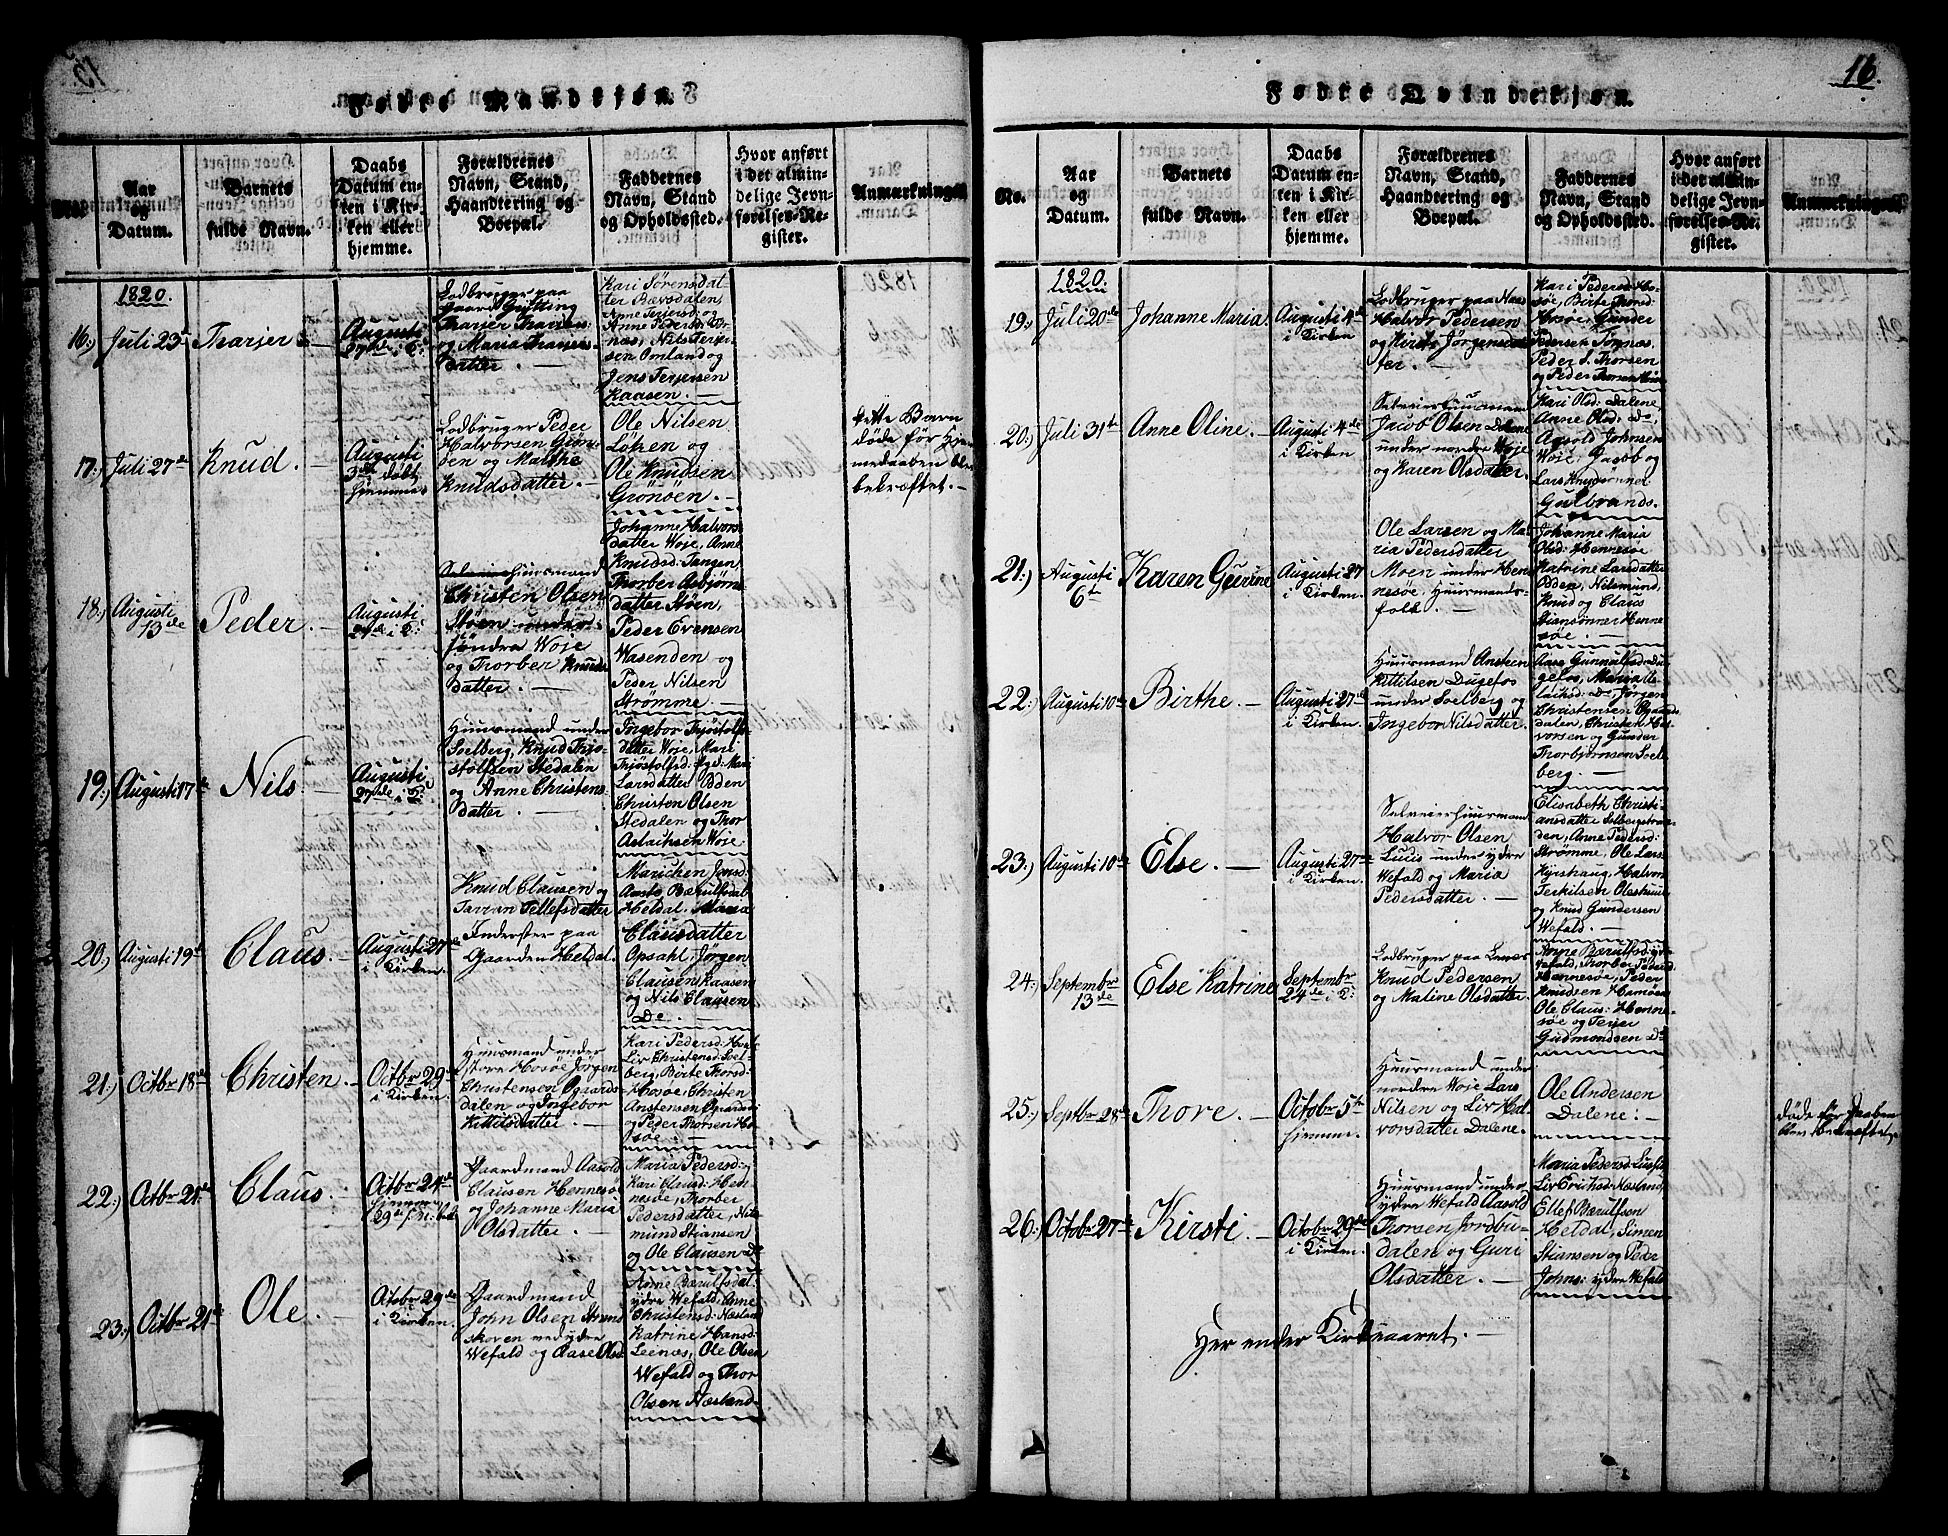 15.
Fødte Mandkjøn.
No.
Aar
og
Datum.
Barnets
fulde Navn.
Daabs
Datum en-
ten i Kir-
ken eller
hjemme.
Forældrenes
Navn, Stand,
Haandtering og
Boepæl.
Faddernes
Navn, Stand
og Opholdssted.
Hvor anført
i det almin-
delige Jevn-
førelses-Re-
gister.
Anmærkninger
1820.
16.) Juli 23de
Tharjer
Augusti
27de i K:
Lodbruger paa
Gaard
Tharjer
og Maria
datter. —
Kari Sørensdat
ter Bævsdalen,
Anne Terjersd: og
Anne Pedersd:
Nils Terjer
sen Omland og
Jens Terjersen
Kaasen. —
17.) Juli 27de
Knud. —
Augusti
3die døbt
hjemme.
Lodbruger Peder
Halvorsen Grøn-
øen og Marthe
Knudsdatter. —
Ole Nilsen
Löken og
Ole Knudsen
Grönöen. —
dette Barn
døde før Hjem
medaaben blev
bekræftet. —
18.) Augusti
13de
Peder. —
Augusti
27de i K:
Huusmand
Christen Olsen
Støen under
søndre Woje
og Thorber Knuds
datter. —
Johanne Halvors
datter Woje, Anne
Knudsd: Tangen
Thorber Asbjørns
datter Støen,
Peder Evensen
Wasenden og
Peder Nilsen
Strømme. —
19.) Augusti 17de
Nils. —
Augusti
27de i K:
Huusmand under
Soelberg, Knud Thjo-
stolfsen Stedalen
og Anne Christens
datter. —
Ingebor Thjostolfs
datter Woje, Mari
Thjostolfsd: Mari
Larsdatter Odden
Christen Olsen
Stedalen og Thor
Aslachsen Woje.
20.) Augusti 19de
Claus. —
Augusti 27de
i Kirken.
Knud Clausen og
Taran Tellefsdatter
Inderster paa
Gaarden Heldal.
Marichen Jensd:
Aaste Bærulfsdat:
Heldal, Maria
Clausdatter
Opsahl, Jørgen
Clausen Kaasen
og Nils Clausen
De. —
21.) Octbr 18de
Christen. —
Octbr 29de
i Kirken.
Huusmand under
store Hosøe Jørgen
Christensen Ogaards
dalen og Ingebor
Kittilsdatter. —
Kari Pedersd:
Liv Christensd: Soel-
berg, Birte Thorsd:
Hosøe Christen
Anstensen Ogaardsd:
og Peder Thorsen Ho-
søe. —
22.) Octbr 21de
Claus. —
Octbr 24de
hjemme
29de
Gaardmand Aasold
Clausen Hennesøe
og Johanne Maria
Olsdatter. —
Maria Pedersd:
Kari Clausd: Hen-
nesøe, Thorber
Pedersdatter, Nils-
mund Stiansen
og Ole Clausen De
23.) Octbr 21de
Ole. —
Octobr 29de
i Kirken.
Gaardmand
John Olsen Strand
skoven ved ydre
Wefald og Aase Olsd:
Anne Bærulfsdat:
ydre Wefald, Anne
Christensd: Næsland
Katrine Hansd:
Leenæs, Ole Olsen
Wefald og Thor
Olsen Næsland
16.
Fødte Qvindekjøn.
No.
Aar
og
Datum.
Barnets
fulde Navn.
Daabs
Datum en-
ten i Kir-
ken eller
hjemme.
Forældrenes
Navn, Stand,
Haandtering og
Boepæl.
Faddernes
Navn, Stand
og Opholdssted.
Hvor anført
i det almin-
delige Jevn-
førelses-Re-
gister.
Anmærkninger.
1820.
19.) Juli 20de
Johanne Maria.
Augusti 4de
i Kirken
Lodbruger paa
Halvor Pedersen
og Kirsti Jørgensdat-
ter. —
Kari Pedersd: Ho-
søe, Birte Thorsd:
Hosøe, Gunder
Pedersen Tornæs,
Peder S. Thorsen
og Peder Thorsen
20.) Juli 31te
Anne Oline. —
Augusti 4de
i Kirken
Selveierhuusmand
Jacob Olsen Dalene
under nordre Woje
og Karen Olsdatter.
Kari Olsd: Dalene,
Anne Olsd: De
Asvold Johnsen
Woje, Jacob og
Lars Knudsønner
Gulbrands. —
21.) Augusti
6te
Karen Gurine
Augusti 27
i Kirken.
Ole Larsen og Ma-
ria Pedersdatter
Moen under Hen-
nesøe, Huusmands-
folk. —
Johanne Maria
Olsd: Hennesøe
Katrine Larsdatter
Odden, Nilsmund
Knud og Claus
Stiansønner Henne
søe. —
22.) Augusti 10de
Birthe. —
Augusti 27de
i Kirken.
Huusmand Ansteen
Kittilsen Dugefos
under Soelberg og
Ingebor Nilsdatter.
Aase Gunnulfsd: Du-
gefos, Maria As-
lachsd: De, Jørgen
Christensen Ogaards
dalen, Christen Hal-
vorsen og Gunder
Thorbjørnsen Soel-
berg. —
23.) Augusti 10de
Else. —
Augusti 27de
i Kirken.
Selveierhuusmand
Halvor Olsen
Luus under ydre
Wefald og Maria
Pedersdatter. —
Elisabeth Christi-
ansdatter Selbergstran-
den, Anne Pedersd:
Strømme, Ole Lars:
Kyrshaug, Halvor
Terkilsen Oleshuus
og Knud Gundersen
Wefald. —
24.) Septembr
13de
Else Katrine
Septembr
24de i K:
Lodbruger paa Leenæs
Knud Pedersen
og Maline Olsdatter.
Anne Bærulfsd: ydre
Wefald, Thorber Pedersd:
Hennesøe, Peder
Knudsen
Ole Claus: Henne-
søe og Terjer
Gudmondsen De
25.) Septbr 28de
Thore. —
Octobr 5te
hjemme.
Huusmand under
nordre Woje Lars
Nilsen og Liv Hal-
vorsdatter Dalene.
Ole Andersen
Dalene. —
døde før Daaben
blev bekræftet.
26.) Octobr 27de
Kirsti. —
Octobr 29de
i Kirken.
Huusmand under
ydre Wefald Aasold
Thorsen Jordbu-
dalen og Guri
Olsdatter. —
Maria Pedersd:
Liv Erichsd: Næsland,
Ellef Bærulfsen
Heldal, Simen
Stiansen og Peder
Johns: ydre Wefald
Her ender Kirkeaaret. —